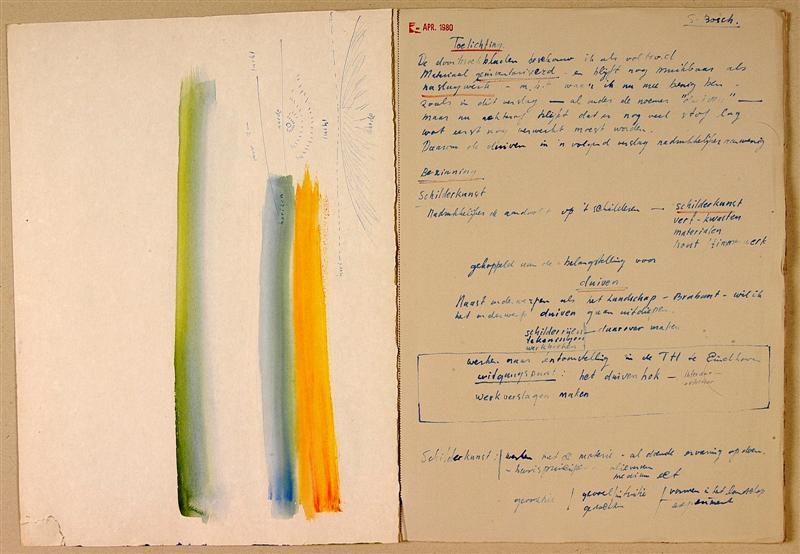 lucht
aarde
lucht
aarde
horizon
S. Bosch.
APR. 1980
Toelichting.
De doortrekbladen beschouw ik als voltooid
Materiaal geinventariseerd - en blijft nog bruikbaar als
naslagwerk - m.b.t. waar ik nu mee bezig ben.
zoals in dit verslag - al onder de noemer "duiven" -
maar nu achteraf blijkt dat er nog veel stof lag
wat eerst nog verwerkt moest worden.
Daarom de duiven in 'n volgend verslag nadrukkelijker aanwezig
Bezinning
Schilderkunst
Nadrukkelijker de aandacht op 't schilderen - schilderkunst
verf - kwasten
materialen
gekoppeld aan de belangstelling voor
duiven
Naast onderwerpen als het Landschap - Brabant - wil ik
het onderwerp duiven gaan uitdiepen.
schilderijen daarover maken
tekeningen
werken naar tentoonstelling in de TH te Eindhoven
uitgangspunt: het duivenhok -
werkverslagen maken
Schilderkunst: werken met de materie - al doende ervaring opdoen.
olieverven
medium
gevoel/intuitie
vormen in het landschap
experiment